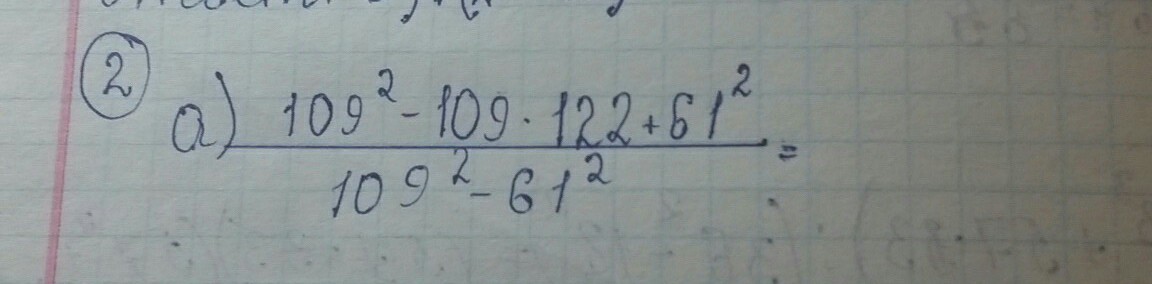 ② а) (109² - 109 · 122 + 61²) / (109² - 61²) =